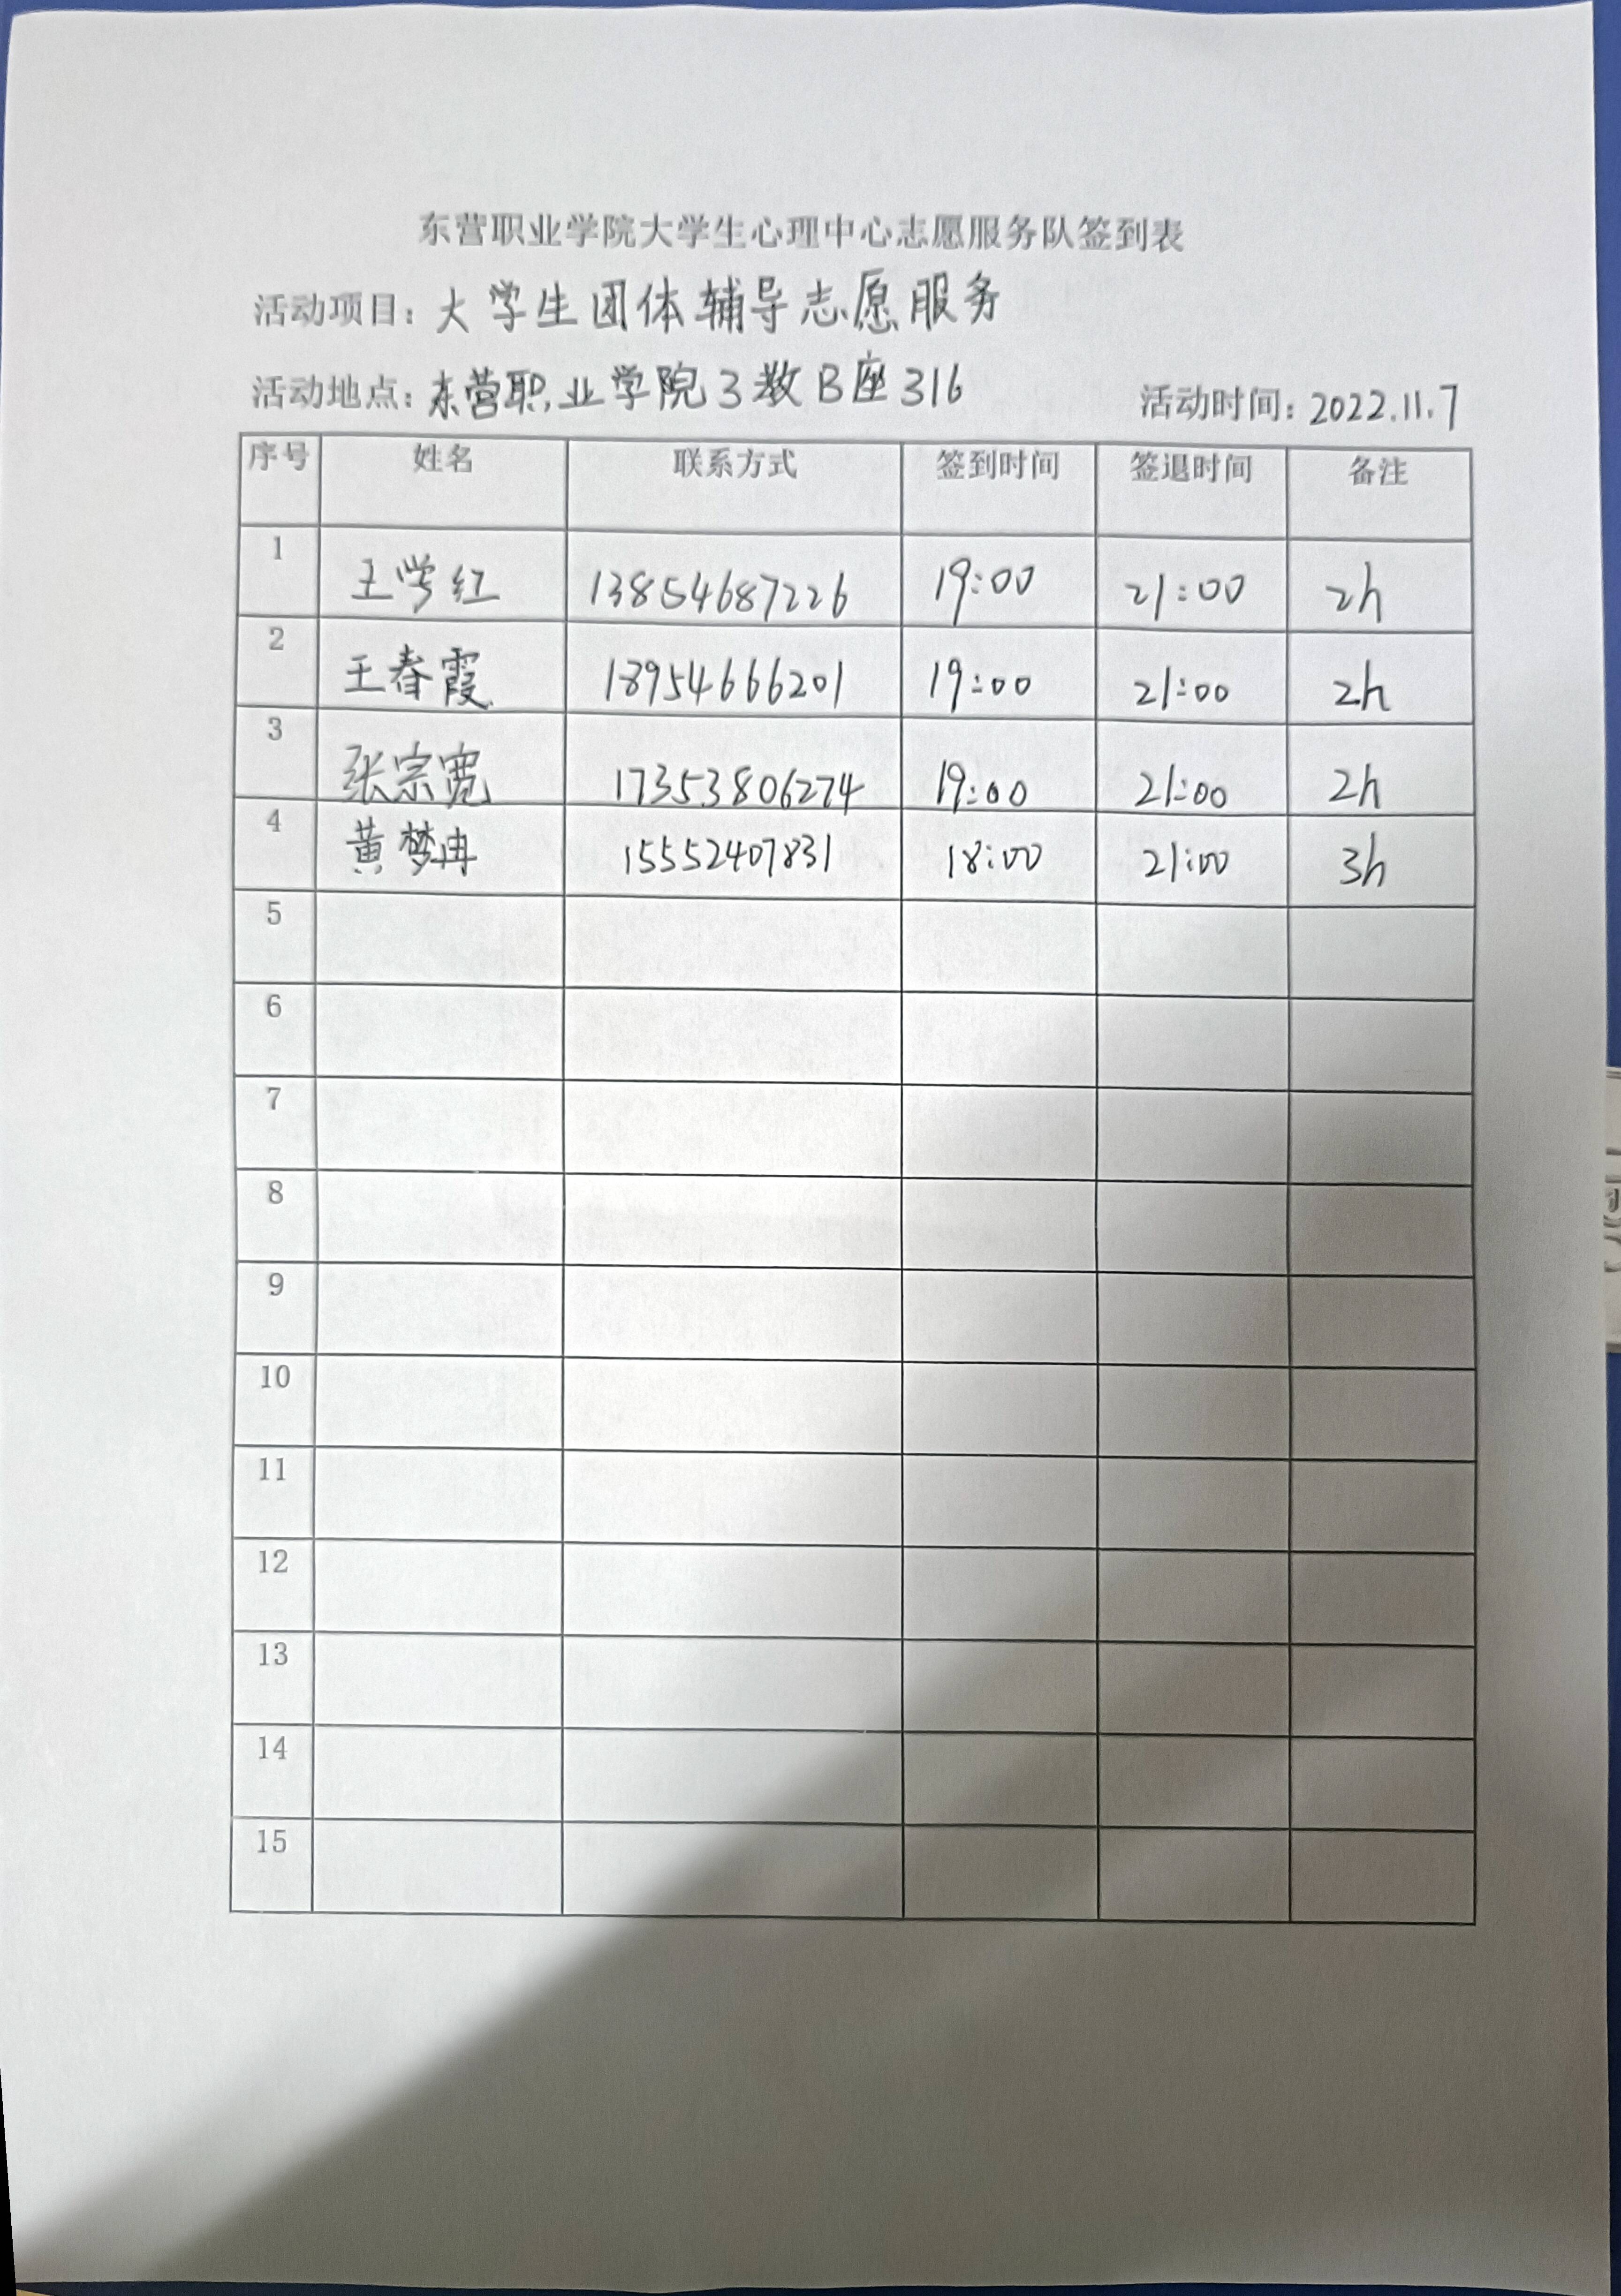 东营职业学院大学生心理中心志愿服务队签到表
活动项目：大学生团体辅导志愿服务
活动地点：东营职业学院3教B座316 活动时间：2022.11.7
序号 姓名 联系方式 签到时间 签退时间 备注
1 王学红 13854687226 19:00 21:00 2h
2 王春霞 18954666201 19:00 21:00 2h
3 张宗宽 17353806274 19:00 21:00 2h
4 黄梦冉 15552407831 18:00 21:00 3h
5
6
7
8
9
10
11
12
13
14
15